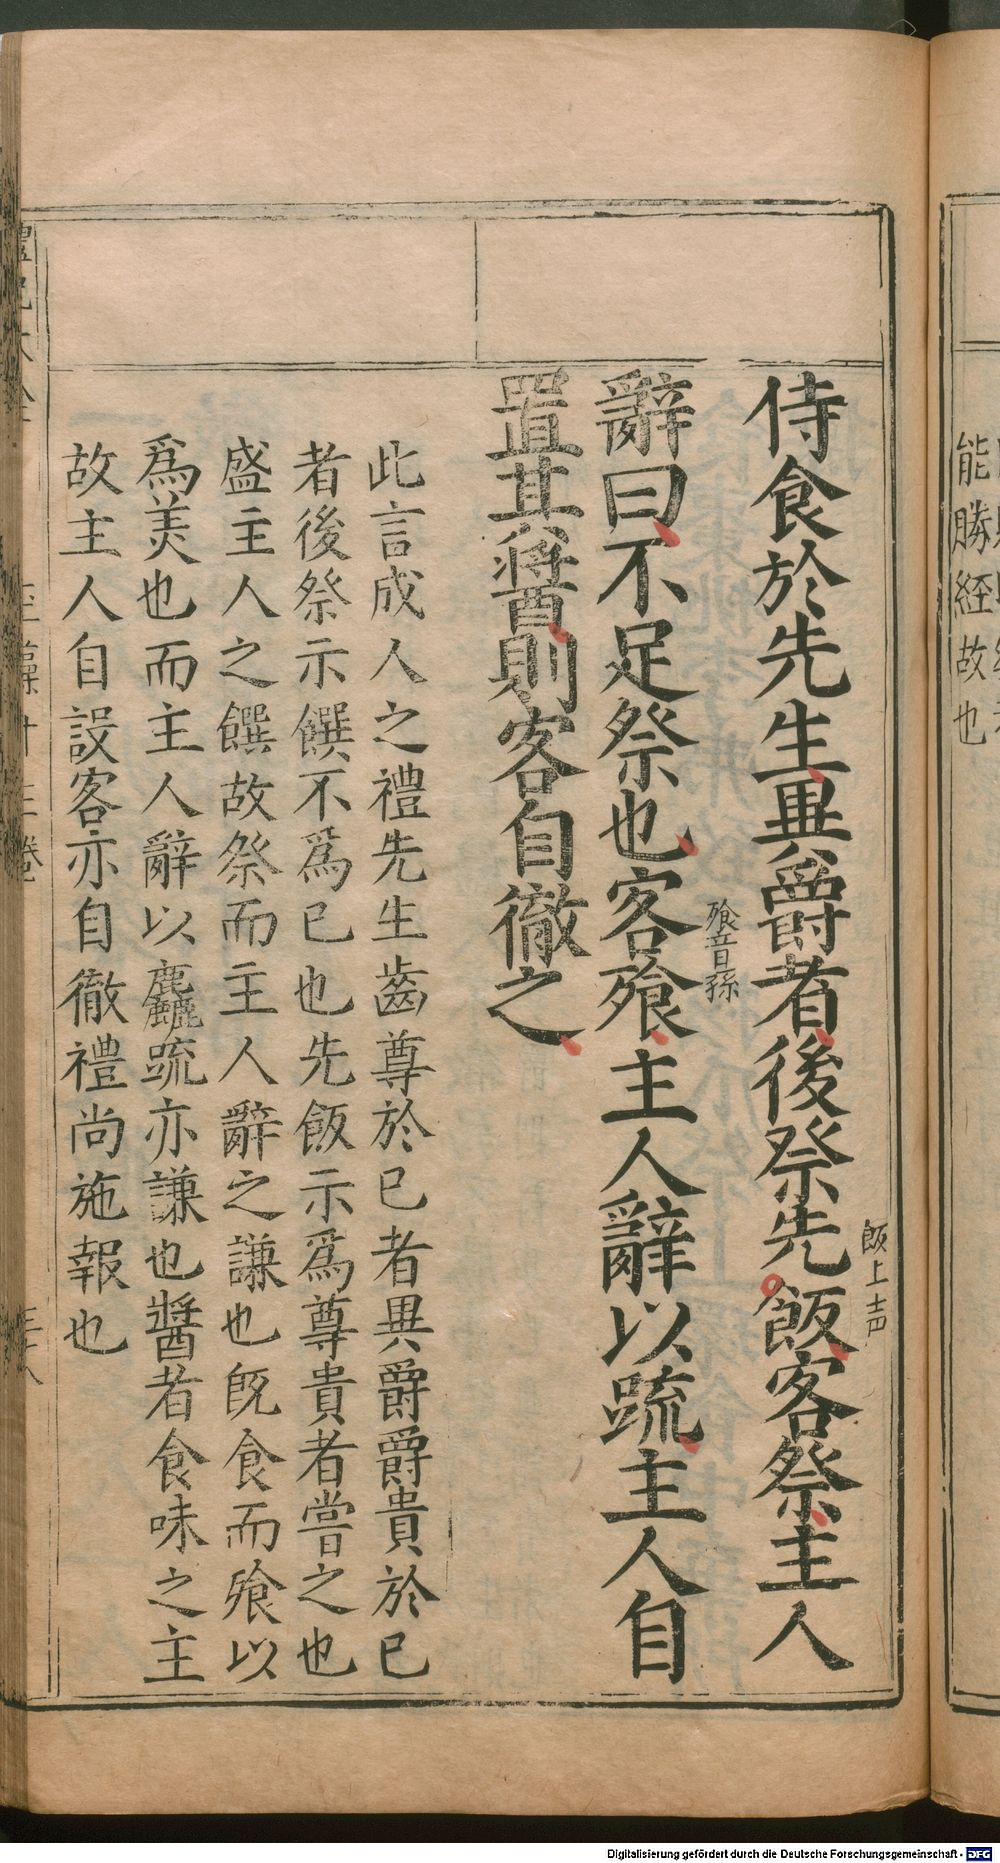 能勝經故也
侍食於先生異爵者後祭先飯客祭主人
飯上声
辭曰不足祭也客飱主人辭以疏主人自
飱音孫
置其醬則客自徹之
此言成人之禮先生齒尊於已者異爵爵貴於已
者後祭示饌不爲已也先飯示爲尊貴者嘗之也
盛主人之饌故祭而主人辭之謙也旣食而飱以
爲美也而主人辭以麤疏亦謙也醬者食味之主
故主人自設客亦自徹禮尚施報也
Digitalisierung gefördert durch die Deutsche Forschungsgemeinschaft - DFG